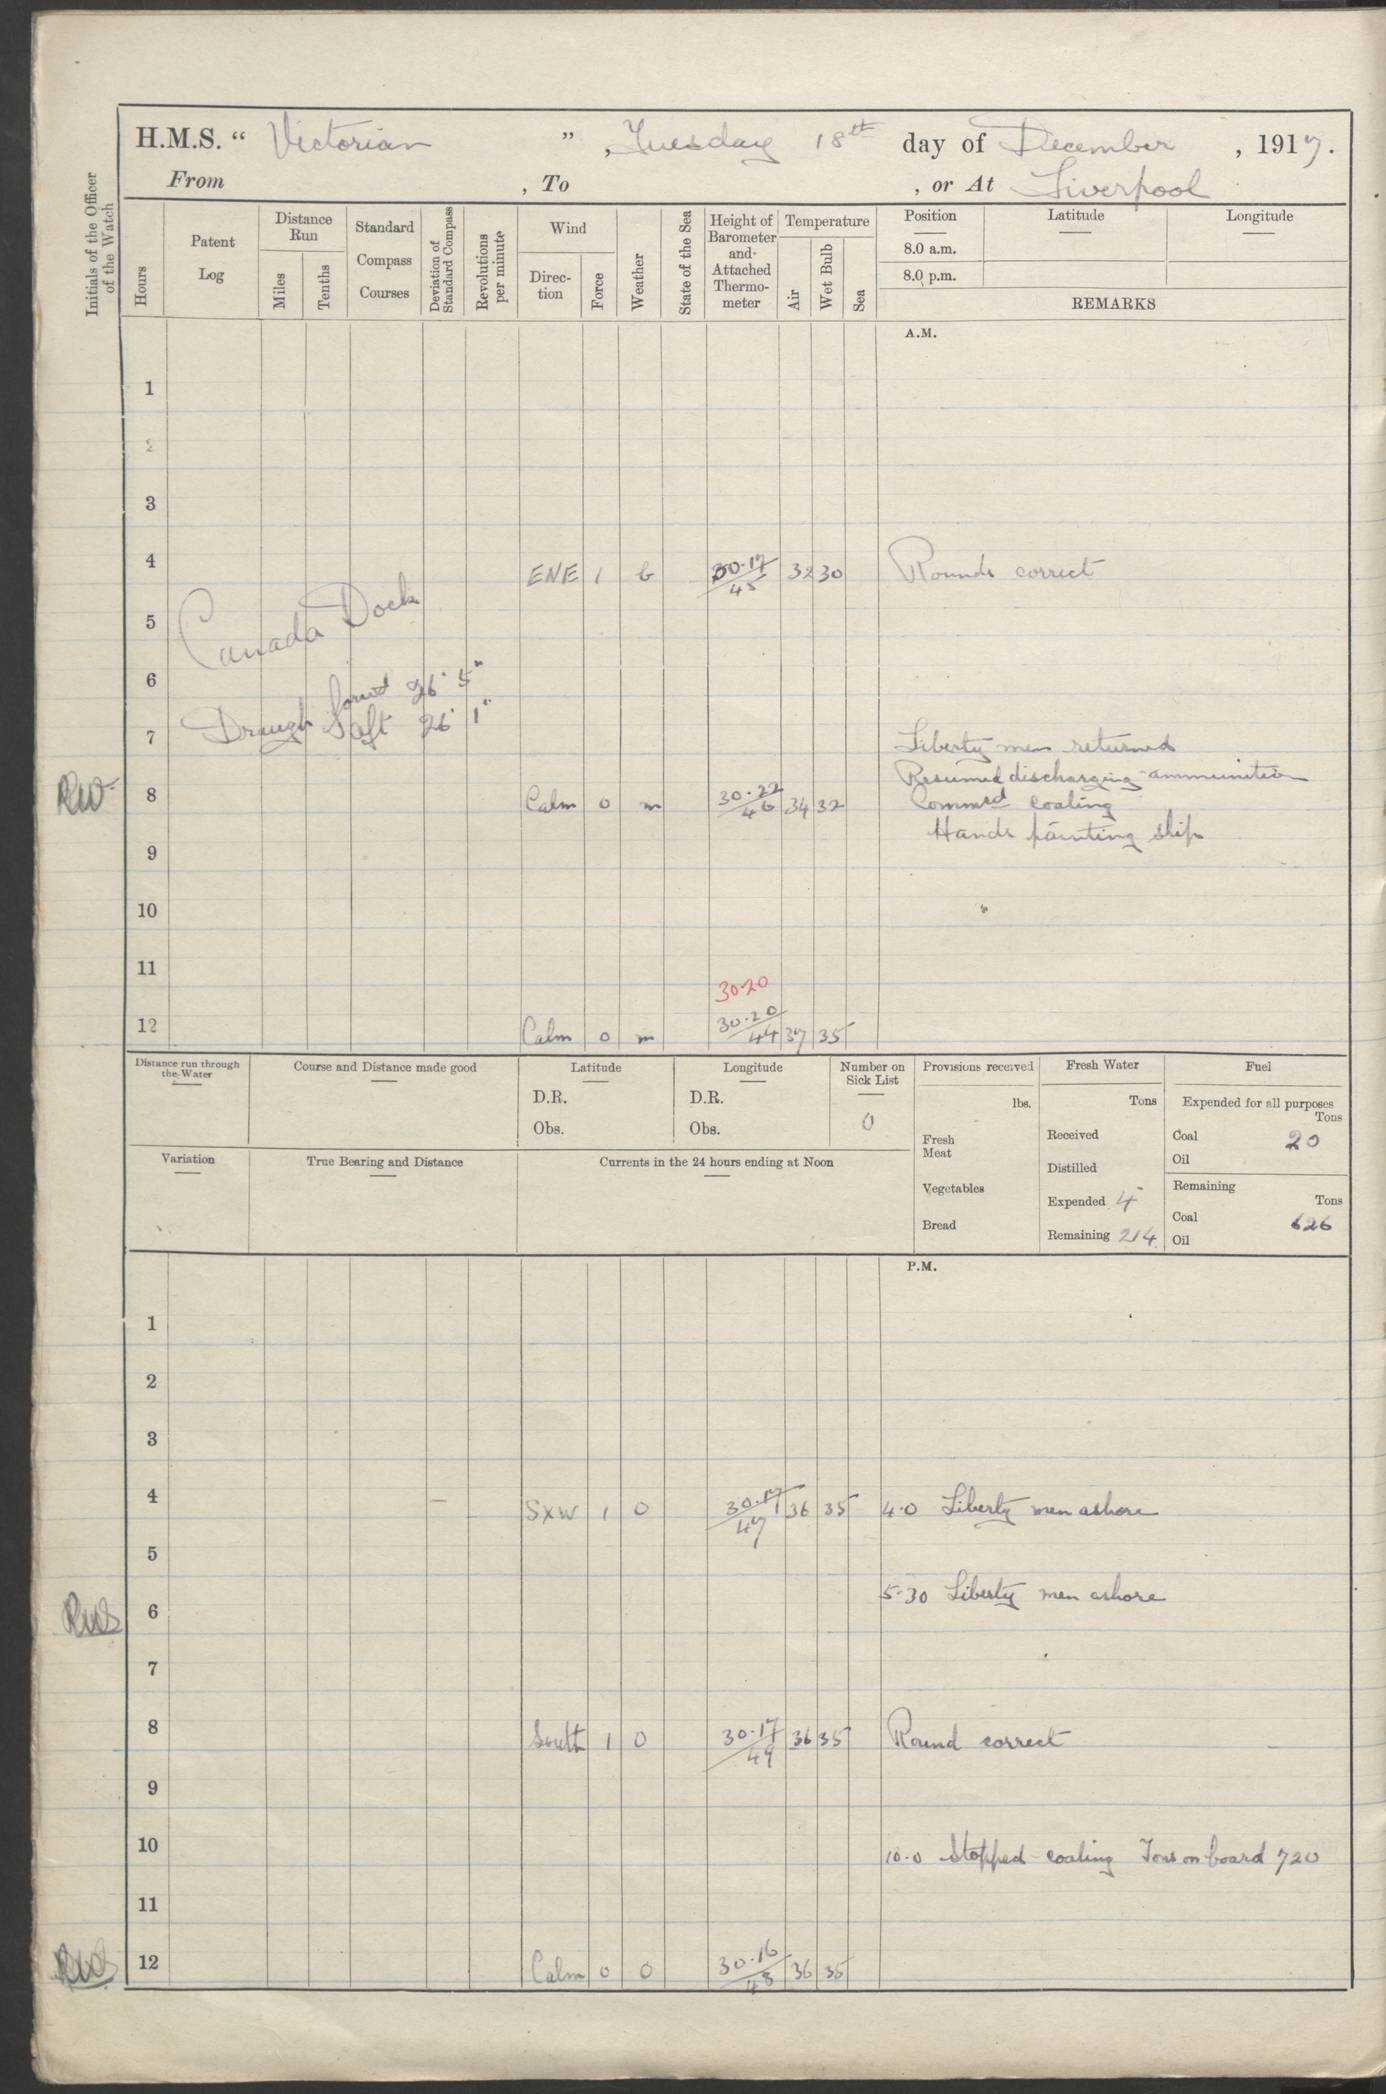 H.M.S. “ Victorian ” , Tuesday 18th day of December , 1917.
From , To , or At Liverpool
Initials of the Officer of the Watch
Hours
Patent Log
Distance Run
Miles
Tenths
Standard Compass Courses
Deviation of Standard Compass
Revolutions per minute
Wind
Direc-tion
Force
Weather
State of the Sea
Height of Barometer and Attached Thermo-meter
Temperature
Air
Wet Bulb
Sea
Position Latitude Longitude
8.0 a.m.
8.0 p.m.
REMARKS
A.M.
1
2
3
4 ENE 1 b 30.17/45 32 30 Rounds correct
Canada Dock
5
6
Draugh forwd 26' 5"
aft 26' 1"
7 Liberty men returned
Resumed discharging ammunition
8 Calm 0 m 30.22/46 34 32 Commsd coaling
Hands painting ship
9
10
11
30.20
12 Calm 0 m 30.20/44 37 35
Distance run through the Water
Course and Distance made good
Latitude
D.R.
Obs.
Longitude
D.R.
Obs.
Number on Sick List
0
Provisions received
lbs.
Fresh Meat
Vegetables
Bread
Fresh Water
Tons
Received
Distilled
Expended 4
Remaining 214
Fuel
Expended for all purposes
Tons
Coal 20
Oil
Remaining
Tons
Coal 626
Oil
Variation
True Bearing and Distance
Currents in the 24 hours ending at Noon
P.M.
1
2
3
4 SXW 1 0 30.17/47 36 35 4.0 Liberty men ashore
5
5.30 Liberty men ashore
6
7
8 South 1 0 30.17/49 36 35 Round correct
9
10 10.0 Stopped coaling Tons on board 720
11
12 Calm 0 0 30.16/48 36 35